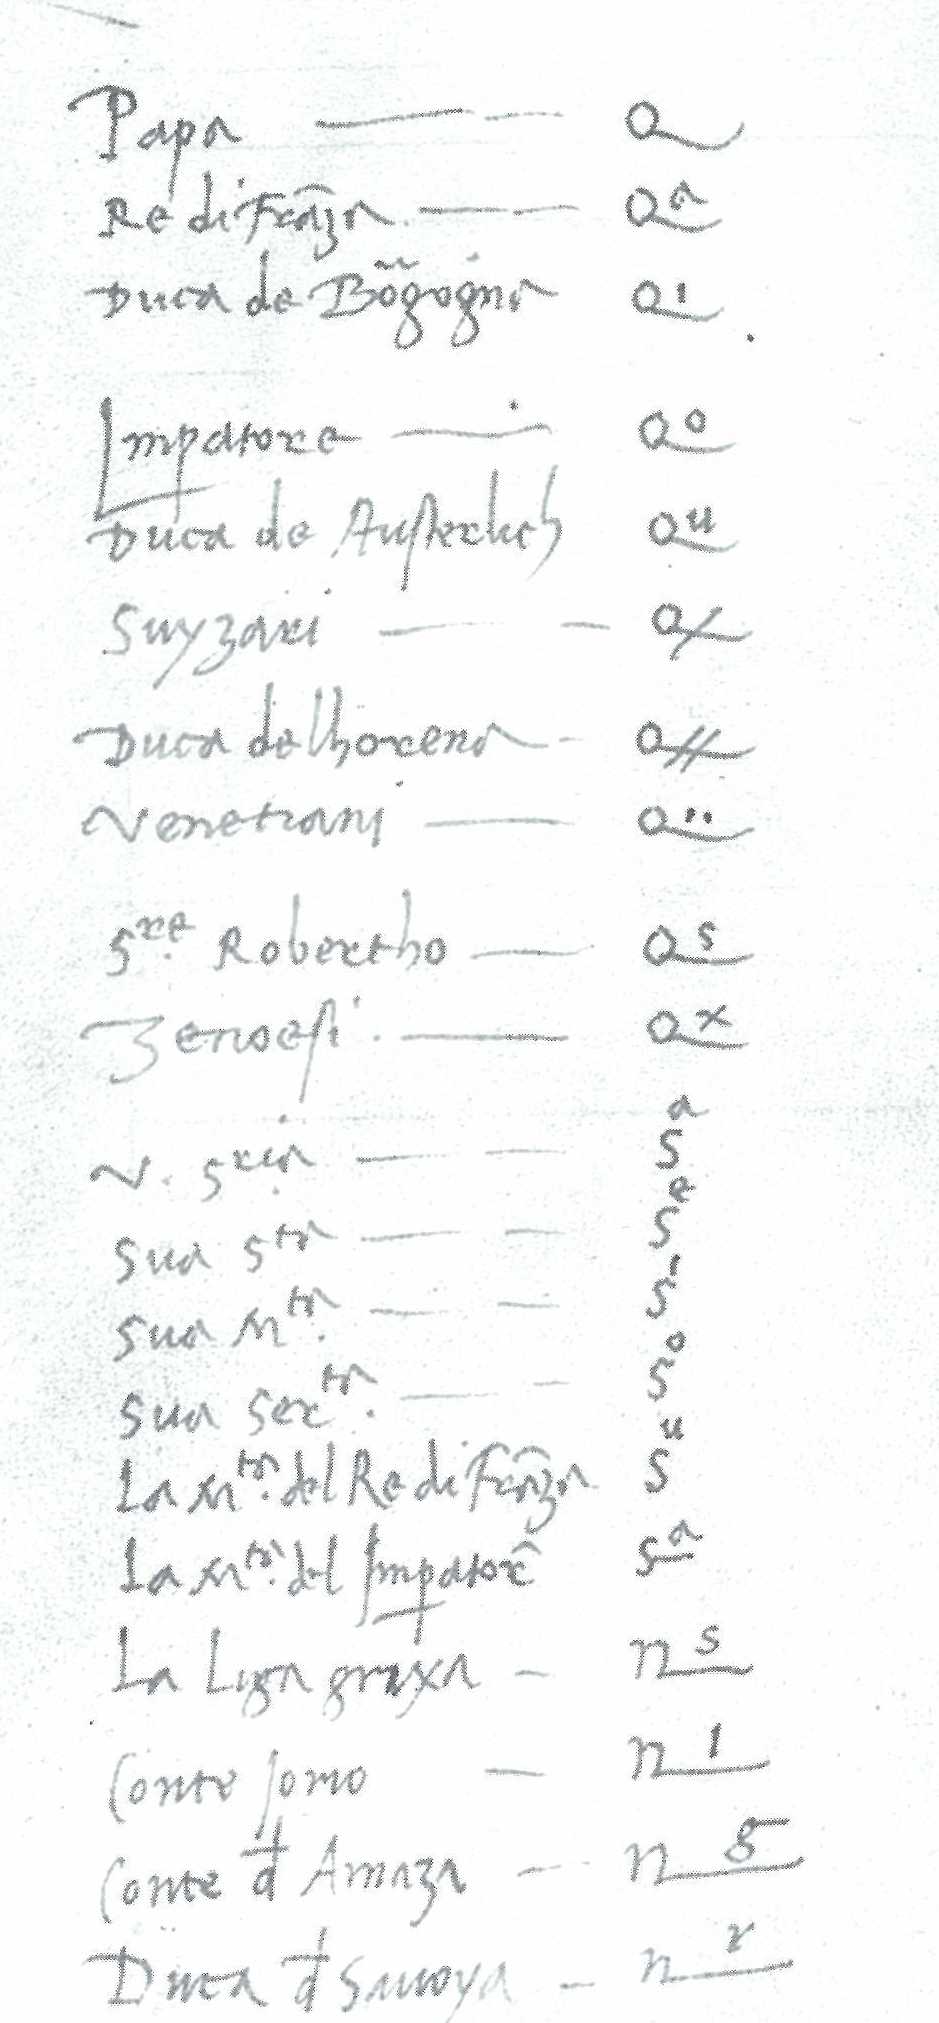 Papa — — o
Re di Frãza — — o a
Duca de Bõgogna o ı
Impatore — o o
Duca de Austerlich o u
Suyzari — — o/
Duca de lhorena - o//
Venetiani — o ··
Sre Robertho — o s
Zenoesi — o x
V. Sria — — S a
Sua Sta — — S e
Sua Mta. — — S ı
Sua Serta. — — S o
La Mta. del Re di Frãza S u
La Mta. del Impatore S a
La Liga grixa - n s
Conte Jomo — n 1
Conte d Amaza — n g
Duca d Sauoya — n r